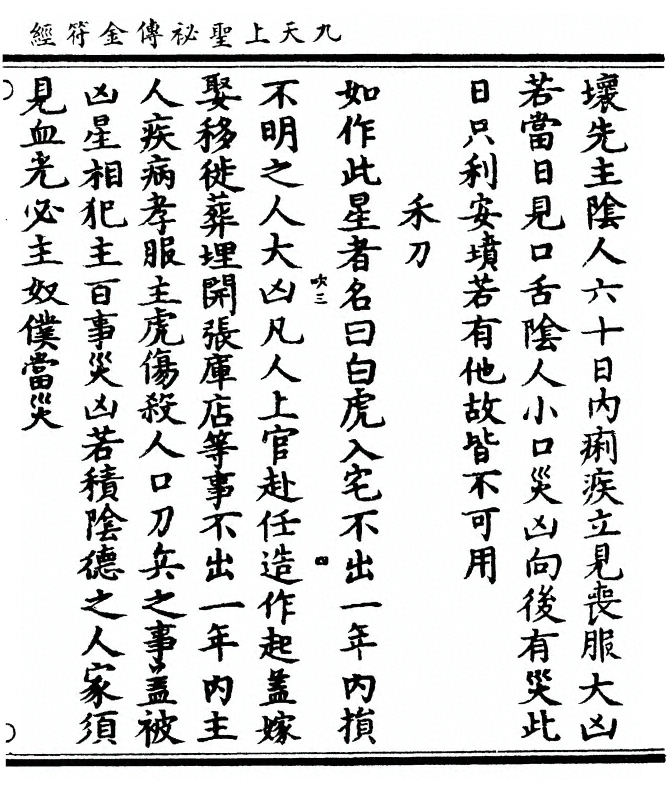 九天上聖祕傳金符經
壞先主陰人六十日內痢疾立見喪服大凶
若當日見口舌陰人小口災凶向後有災此
日只利安墳若有他故皆不可用
禾刀
如作此星者名曰白虎入宅不出一年內損
不明之人大凶凡人上官赴任造作起蓋嫁
娶移徙葬埋開張庫店等事不出一年內主
人疾病孝服主虎傷殺人口刀兵之事蓋被
凶星相犯主百事災凶若積陰德之人家須
見血光必主奴僕當災
吹三
四